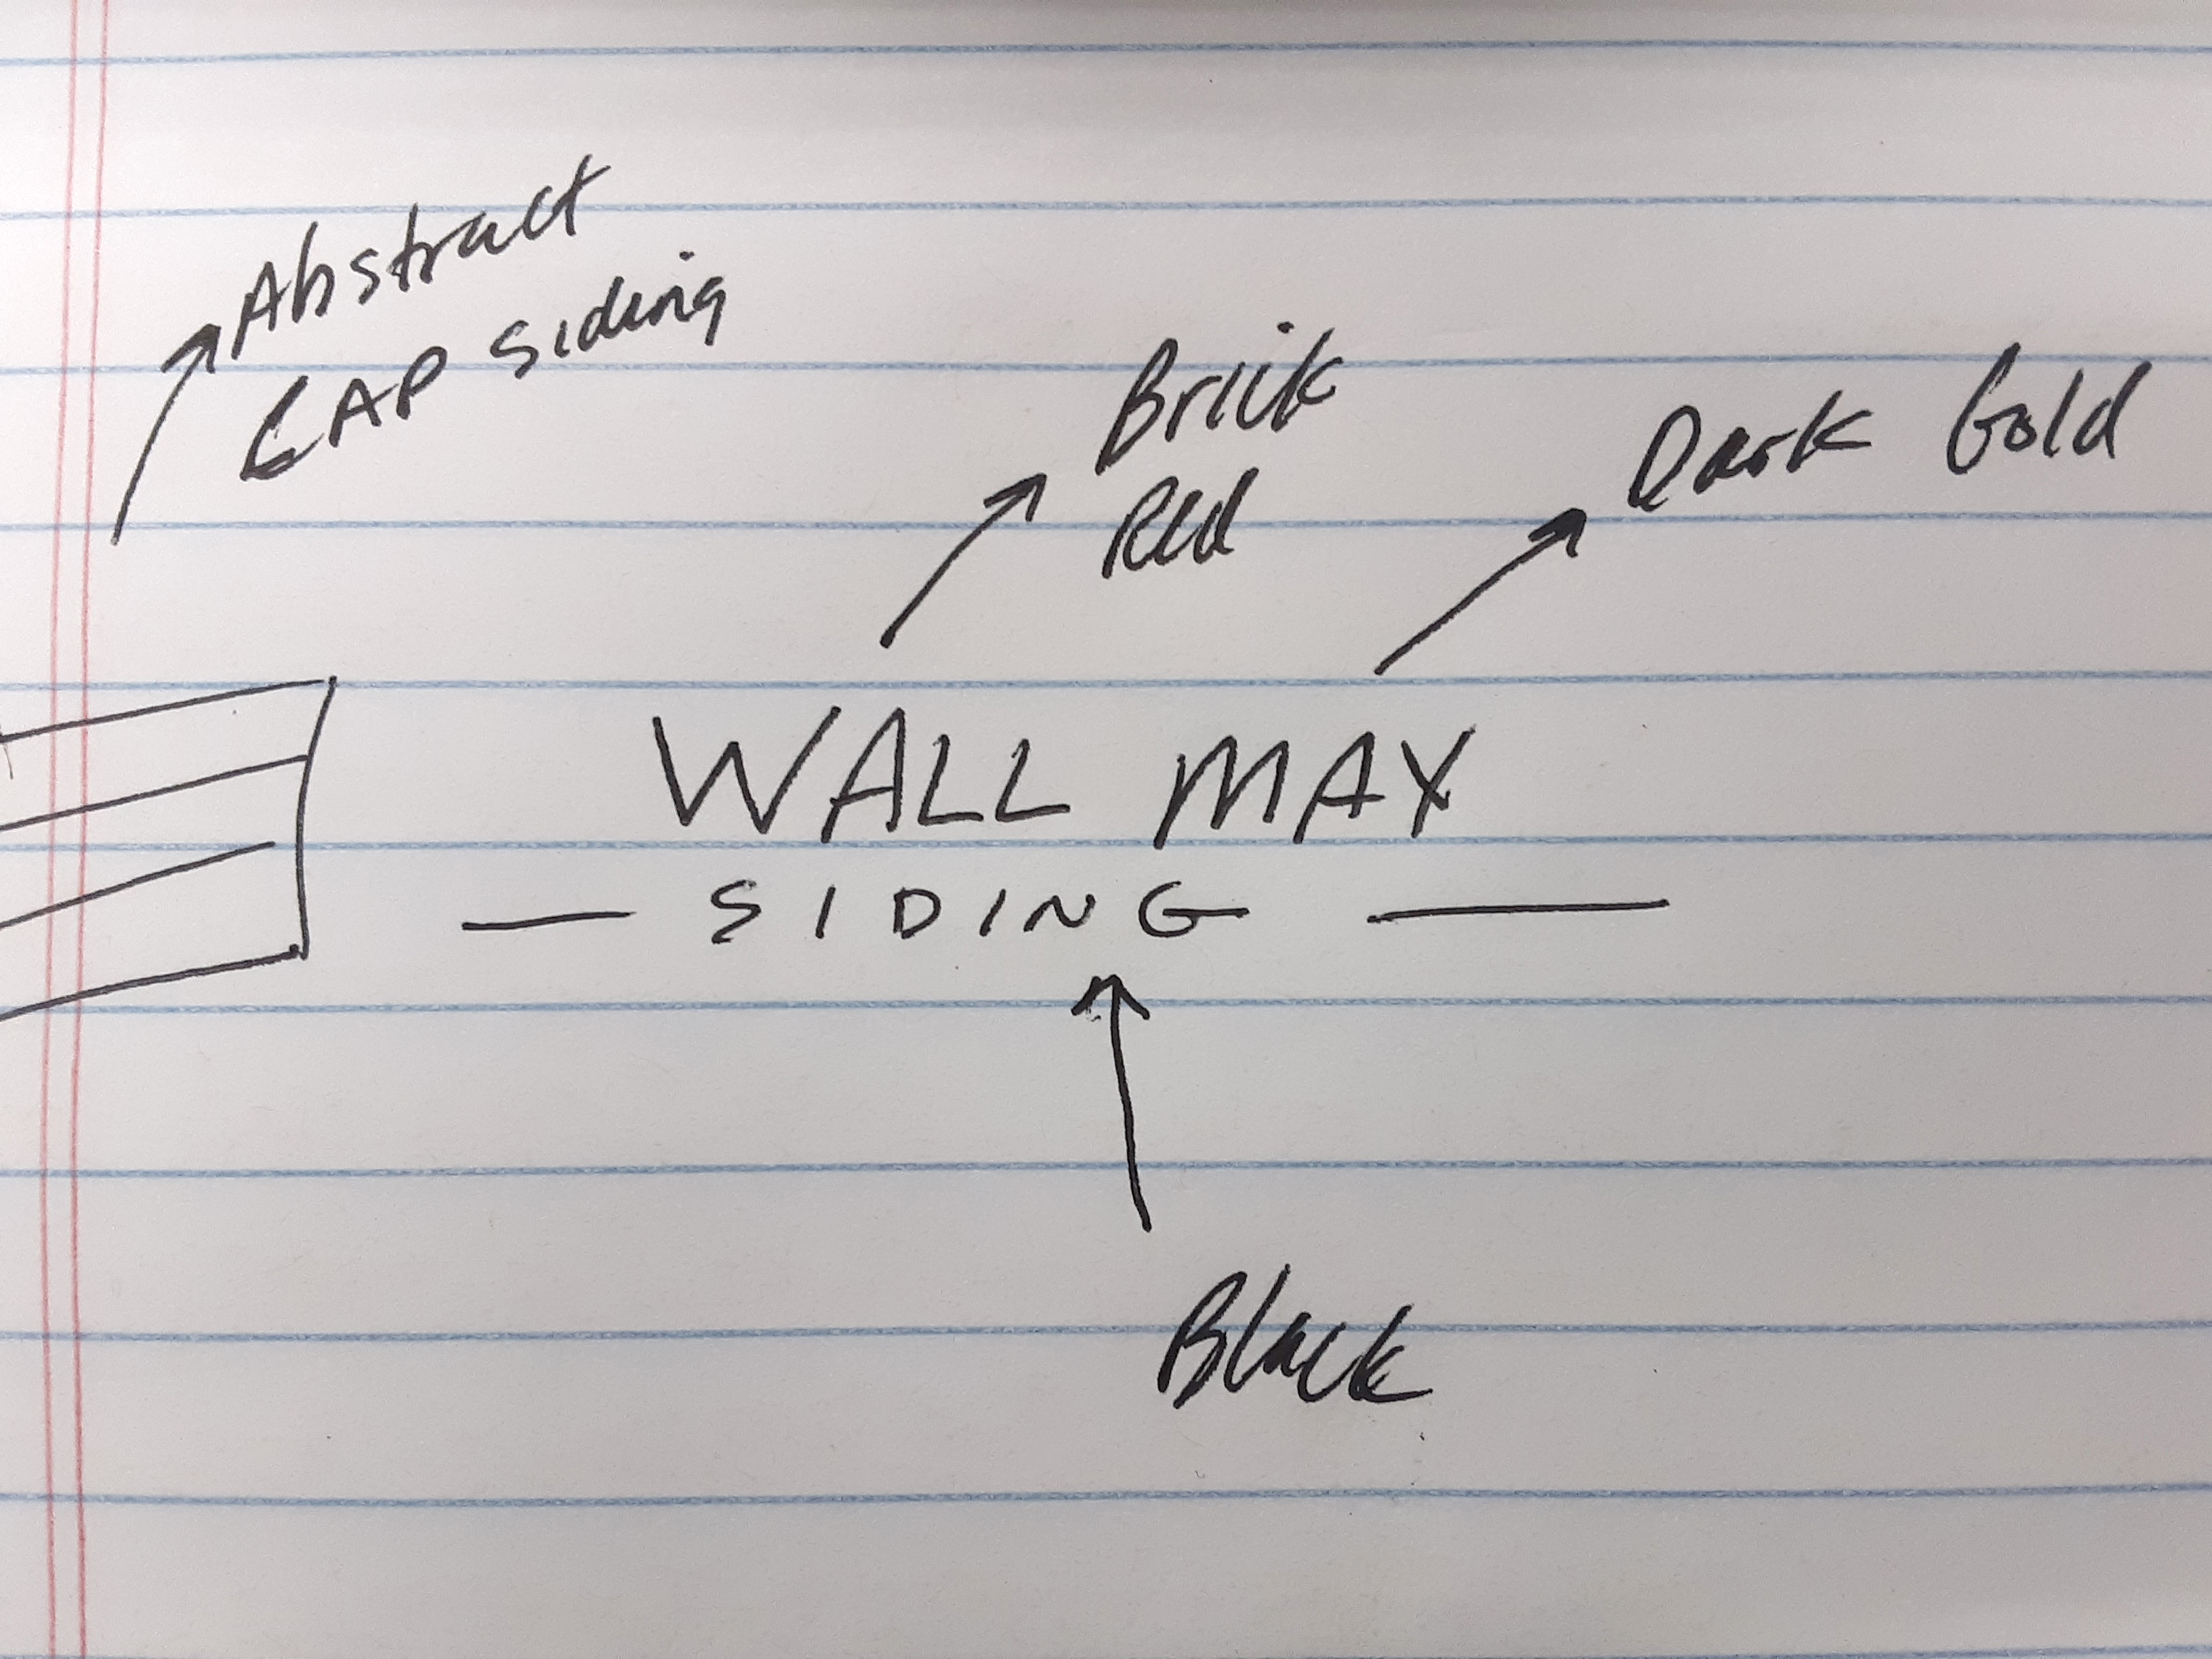 Abstract
LAP siding
Brick
Red
Dark Gold
WALL MAX
— SIDING —
Black